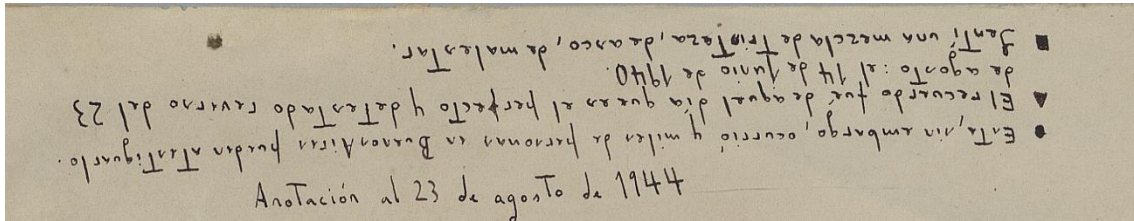 Anotación al 23 de agosto de 1944
● Esto, sin embargo, ocurrió y miles de personas en Buenos Aires pueden atestiguarlo.
▲ El recuerdo fué de aquel día que es el perfecto y detestado reverso del 23
de agosto: el 14 de junio de 1940.
■ Sentí una mezcla de tristeza, de asco, de malestar.